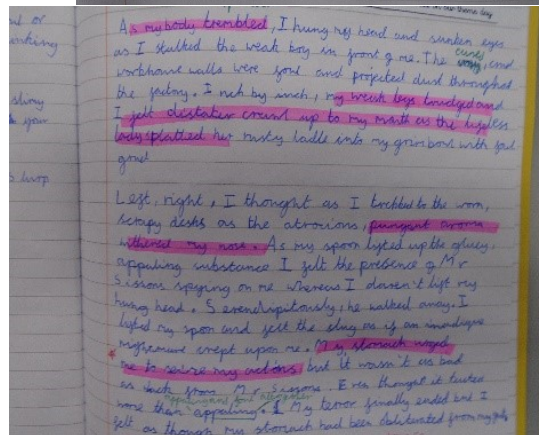 As my body trembled, I hung my head and sunken eyes
as I stalked the weak boy in front of me. The cursed, and
workhouse walls were foul and projected dust throughout
the factory. Inch by inch, my weak legs trudged and
I felt distaste crawl up to my mouth as the lifeless
lady splatted her rusty ladle into my grim bowl with foul
gruel
Left, right. I thought as I trebbled to the worn,
scrapy desks as the atrocious, pungent aroma
withered my nose. As my spoon lifted up the gluey,
appaling substance I felt the presence of Mr
Sissons spying on me whereas I daren't lift my
hung head. Serendipitously, he walked away. I
lifted my spoon and felt the slug as if an
crept upon me. My stomach urged
me to seize my actions but it wasn't as bad
as from Mr Sissons. Even thought it tasted
more than appaling. My terror finally ended but I
felt as though my stomach had been obliterated from my